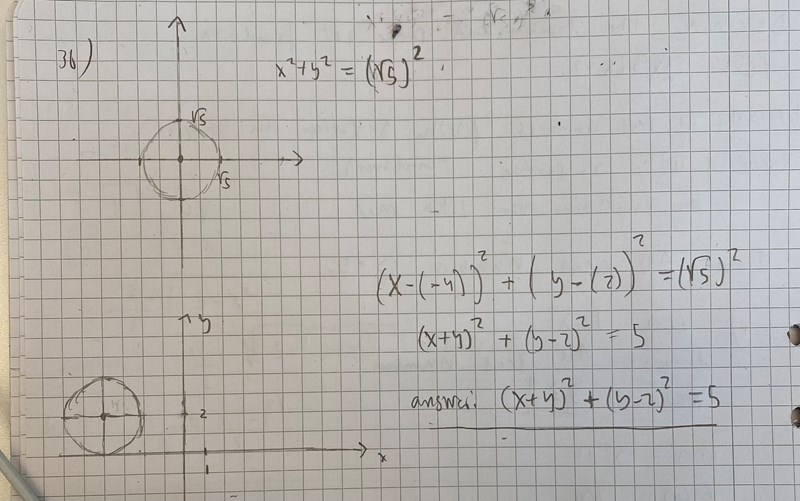 36)
x² + y² = (√5)²
√5
√5
(x-(-4))² + (y-(2))² = (√5)²
y
(x+4)² + (y-2)² = 5
answer: (x+4)² + (y-2)² = 5
2
x
1